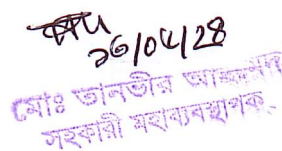 ২৬/০৫/২৪
মোঃ তানভীর আহমেদ
সহকারী মহাব্যবস্থাপক